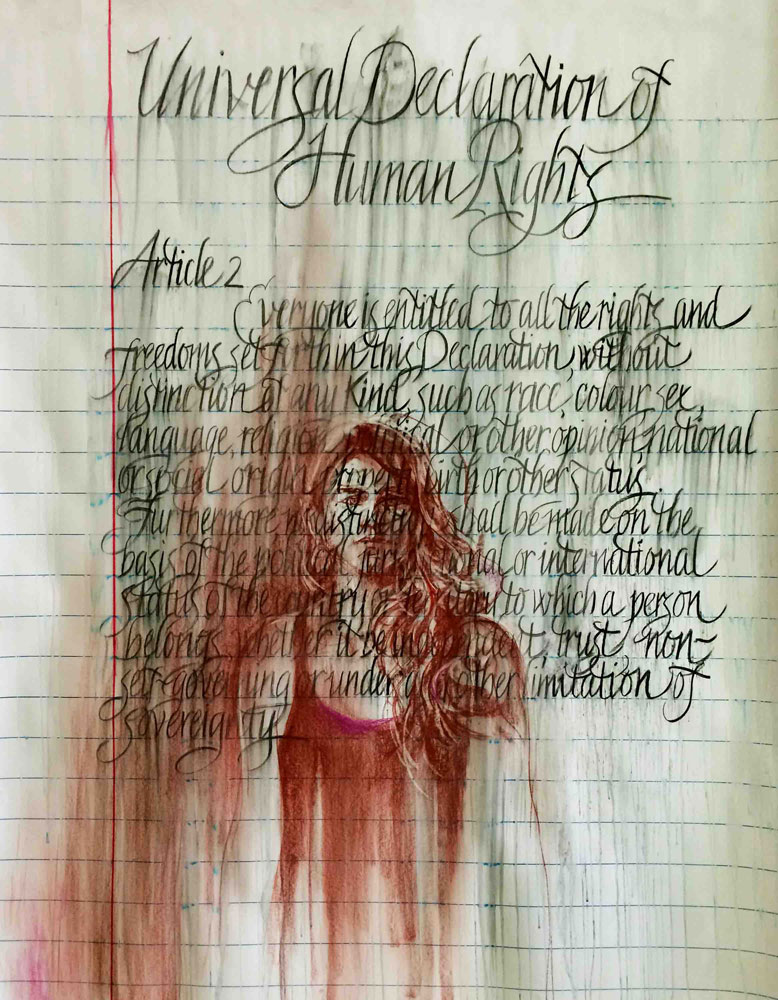 Universal Declaration of
Human Rights
Article 2
Everyone is entitled to all the rights and
freedoms set forth in this Declaration, without
distinction of any kind, such as race, colour, sex,
language, religion, political or other opinion, national
or social origin, property, birth or other status.
Furthermore no distinction shall be made on the
basis of the political, jurisdictional or international
status of the country or territory to which a person
belongs, whether it be independent, trust, non-
self-governing or under any other limitation of
sovereignty